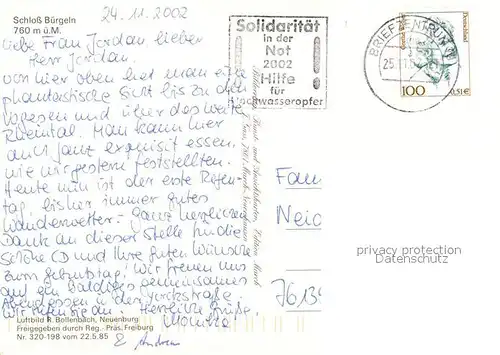 Schloß Bürgeln
760 m ü.M.
24.11.2002
Liebe Frau Jordan, lieber
Herr Jordan.
von hier oben hat man eine
phantastische Sicht bis zu den
Vogesen und über das weite
Rheintal. Man kann hier
auch ganz exquisit essen,
wie wir gestern feststellten.
Heute nun ist der erste Regen-
tag, bisher immer gutes
Wanderwetter. Ganz herzlichen
Dank an dieser Stelle für die
schöne CD und Ihre guten Wünsche
zum Geburtstag! Wir freuen uns
auf ein baldiges gemeinsames
Abendessen in der Yorckstraße.
Wir rufen Sie an. Herzliche Grüße,
&
Luftbild R. Bollenbach, Neuenburg
Freigegeben durch Reg.-Präs. Freiburg
Nr. 320-198 vom 22.5.85
Solidarität
in der
Not
2002
Hilfe
für
Hochwasseropfer
BRIEFZENTRUM
25.11.
Deutschland
100
0,51€
Fam
Neid
7613
privacy protection
Datenschutz